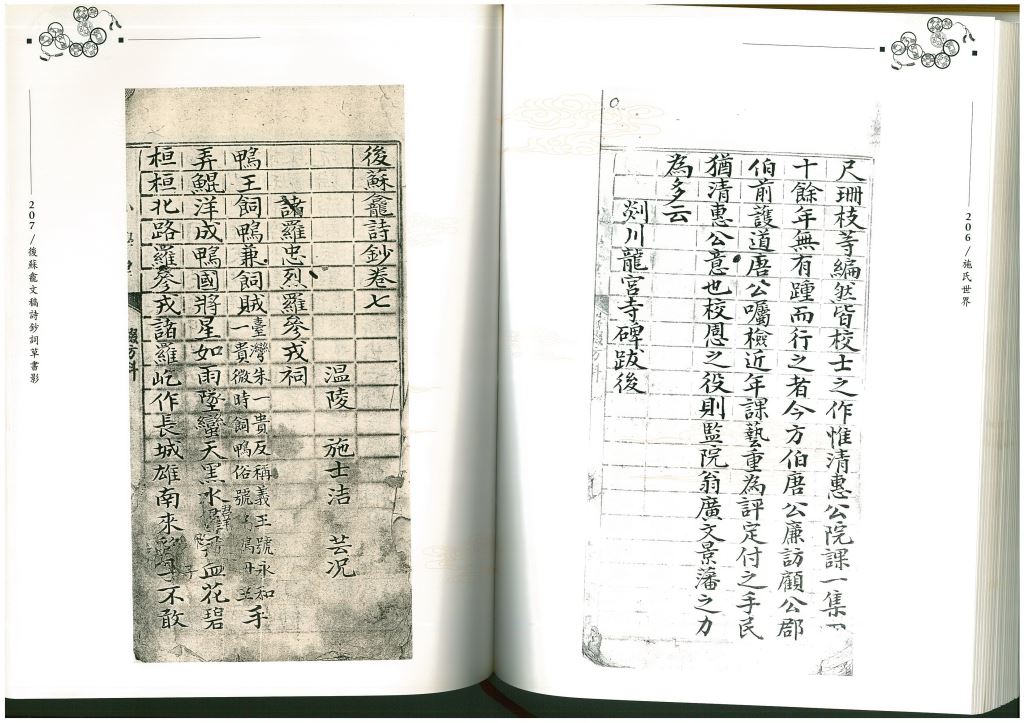 206/施氏世界
尺珊枝等編然皆校士之作惟清惠公院課一集
十餘年無有踵而行之者今方伯唐公廉訪顧公郡
伯前護道唐公囑檢近年課藝重為評定付之手民
猶清惠公意也校恩之役則監院翁廣文景藩之力
為多云
剡川龍宮寺碑跋後
後蘇龕詩鈔卷七
温陵 施士洁 芸况
諸羅忠烈羅參戎祠
鴨王飼鴨兼飼賊
臺灣朱一貴反稱義王號永和
一貴微時飼鴨俗號
手
弄鯤洋成鴨國將星如雨墜蠻天黑水血花碧
桓桓北路羅參戎諸羅屹作長城雄南來不敢
207/後蘇龕文稿詩鈔詞草書影